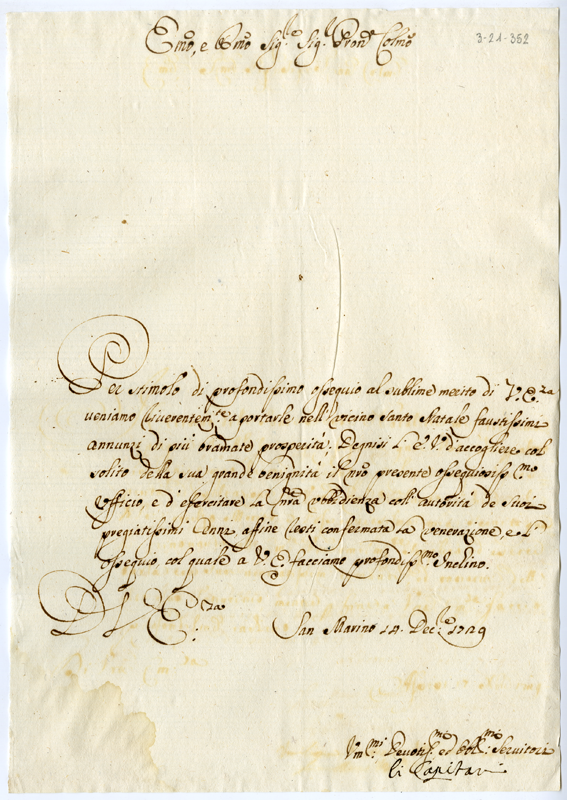 Emo, e Rmo Sig.re Sig.r Pron.e Colmo
3-21-352
Per stimolo di profondissimo ossequio al sublime merito di V. E.za
veniamo riverentem.te a portarle nell vicino Santo Natale faustissimi
annunzj di più bramate prosperità; Degnisi l'E. V. d'accogliere col
solito della sua grande benignità il nro presente ossequiosiss.mo
Ufficio, e d'esercitare la nra obbedienza coll'autorità de Suoi
pregiatissimi Cenni, affine resti confermata la venerazione, e l'
ossequio col quale a V. E. facciamo profondiss.mo inchino.
Di V. E.za
San Marino 14. Dec.re 1729
Um.mi Devotis.mi ed Obb.mi Servitori
li Capitani